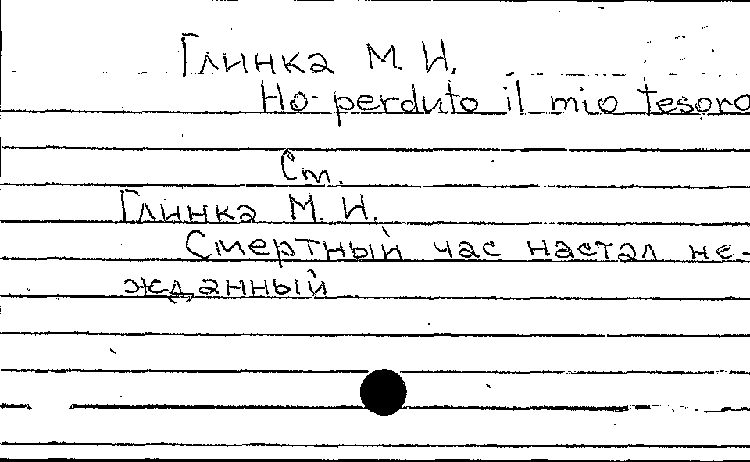 Глинка М. И.
Ho perduto il mio tesoro
См.
Глинка М. И.
Смертный час настал не-
жданный